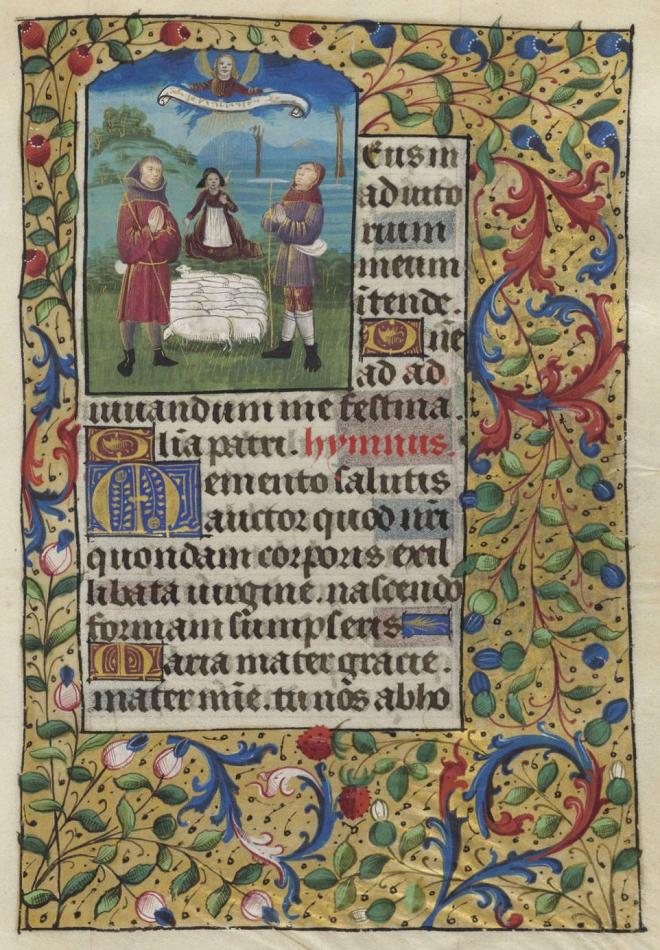 Eus in
ad iuto
rium
meum
itende.
Dñe
ad ad
iuuandum me festina.
Glia patri. hymnus.
Memento salutis
auctor quod nri
quondam corporis exil
libata uirgine. nascendo
formam sumpseris
Maria mater gracie.
mater mie. tu nos abho